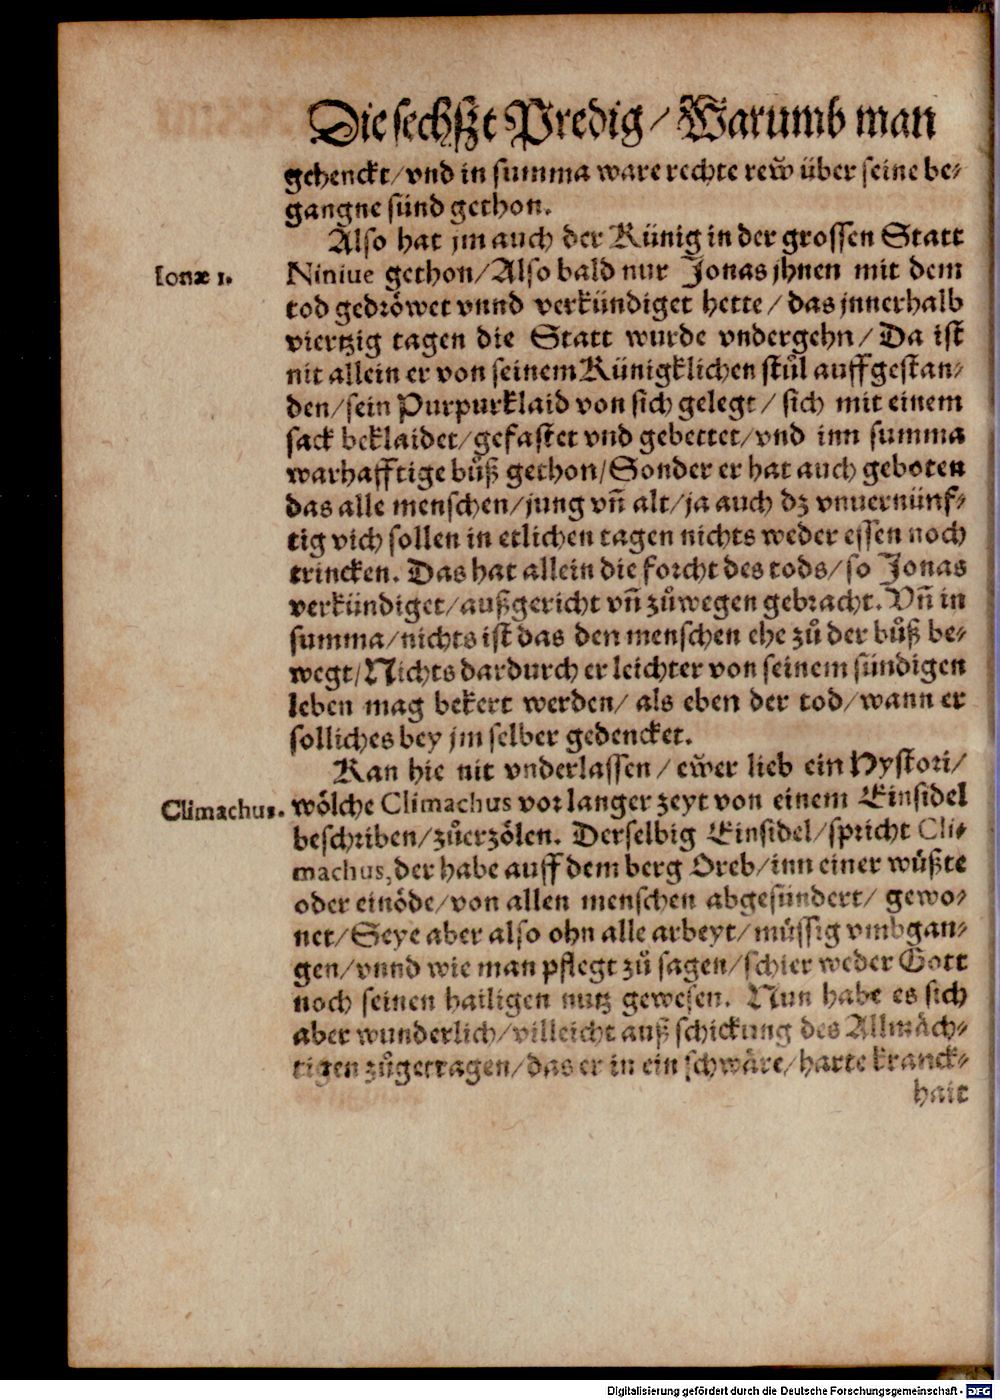 Die sechſzt Predig / Warumb man
gehenckt / vnd in summa ware rechte rew̆ über seine be-
gangne sünd gethon.
Also hat jm auch der Künig in der grossen Statt
Ionæ 1.
Niniue gethon / Also bald nur Jonas jhnen mit dem
tod gedröwet vnnd verkündiget hette / das jnnerhalb
viertzig tagen die Statt wurde vndergehn / Da ist
nit allein er von seinem Künigklichen stůl auffgestan-
den / sein Purpurklaid von sich gelegt / sich mit einem
sack beklaidet / gefastet vnd gebettet / vnd inn summa
warhafftige bůß gethon / Sonder er hat auch geboten
das alle menschen / jung vñ alt / ja auch dz vnuernünf-
tig vich sollen in etlichen tagen nichts weder essen noch
trincken. Das hat allein die forcht des tods / so Jonas
verkündiget / außgericht vñ zůwegen gebracht. Vñ in
summa / nichts ist das den menschen ehe zů der bůß be-
wegt / Nichts dardurch er leichter von seinem sündigen
leben mag bekert werden / als eben der tod / wann er
solliches bey jm selber gedencket.
Kan hie nit vnderlassen / ew̆er lieb ein Hystori /
Climachus.
wölche Climachus vor langer zeyt von einem Einsidel
beschriben / zůerzölen. Derselbig Einsidel / spricht Cli-
machus, der habe auff dem berg Oreb / inn einer wůßte
oder einöde / von allen menschen abgesündert / gewo-
net / Seye aber also ohn alle arbeyt / müssig vmbgan-
gen / vnnd wie man pflegt zů sagen / schier weder Gott
noch seinen hailigen nutz gewesen. Nun habe es sich
aber wunderlich / villeicht auß schickung des Allmäch-
tigen zůgetragen / das er in ein schwäre / harte kranck-
hait
Digitalisierung gefördert durch die Deutsche Forschungsgemeinschaft - DFG